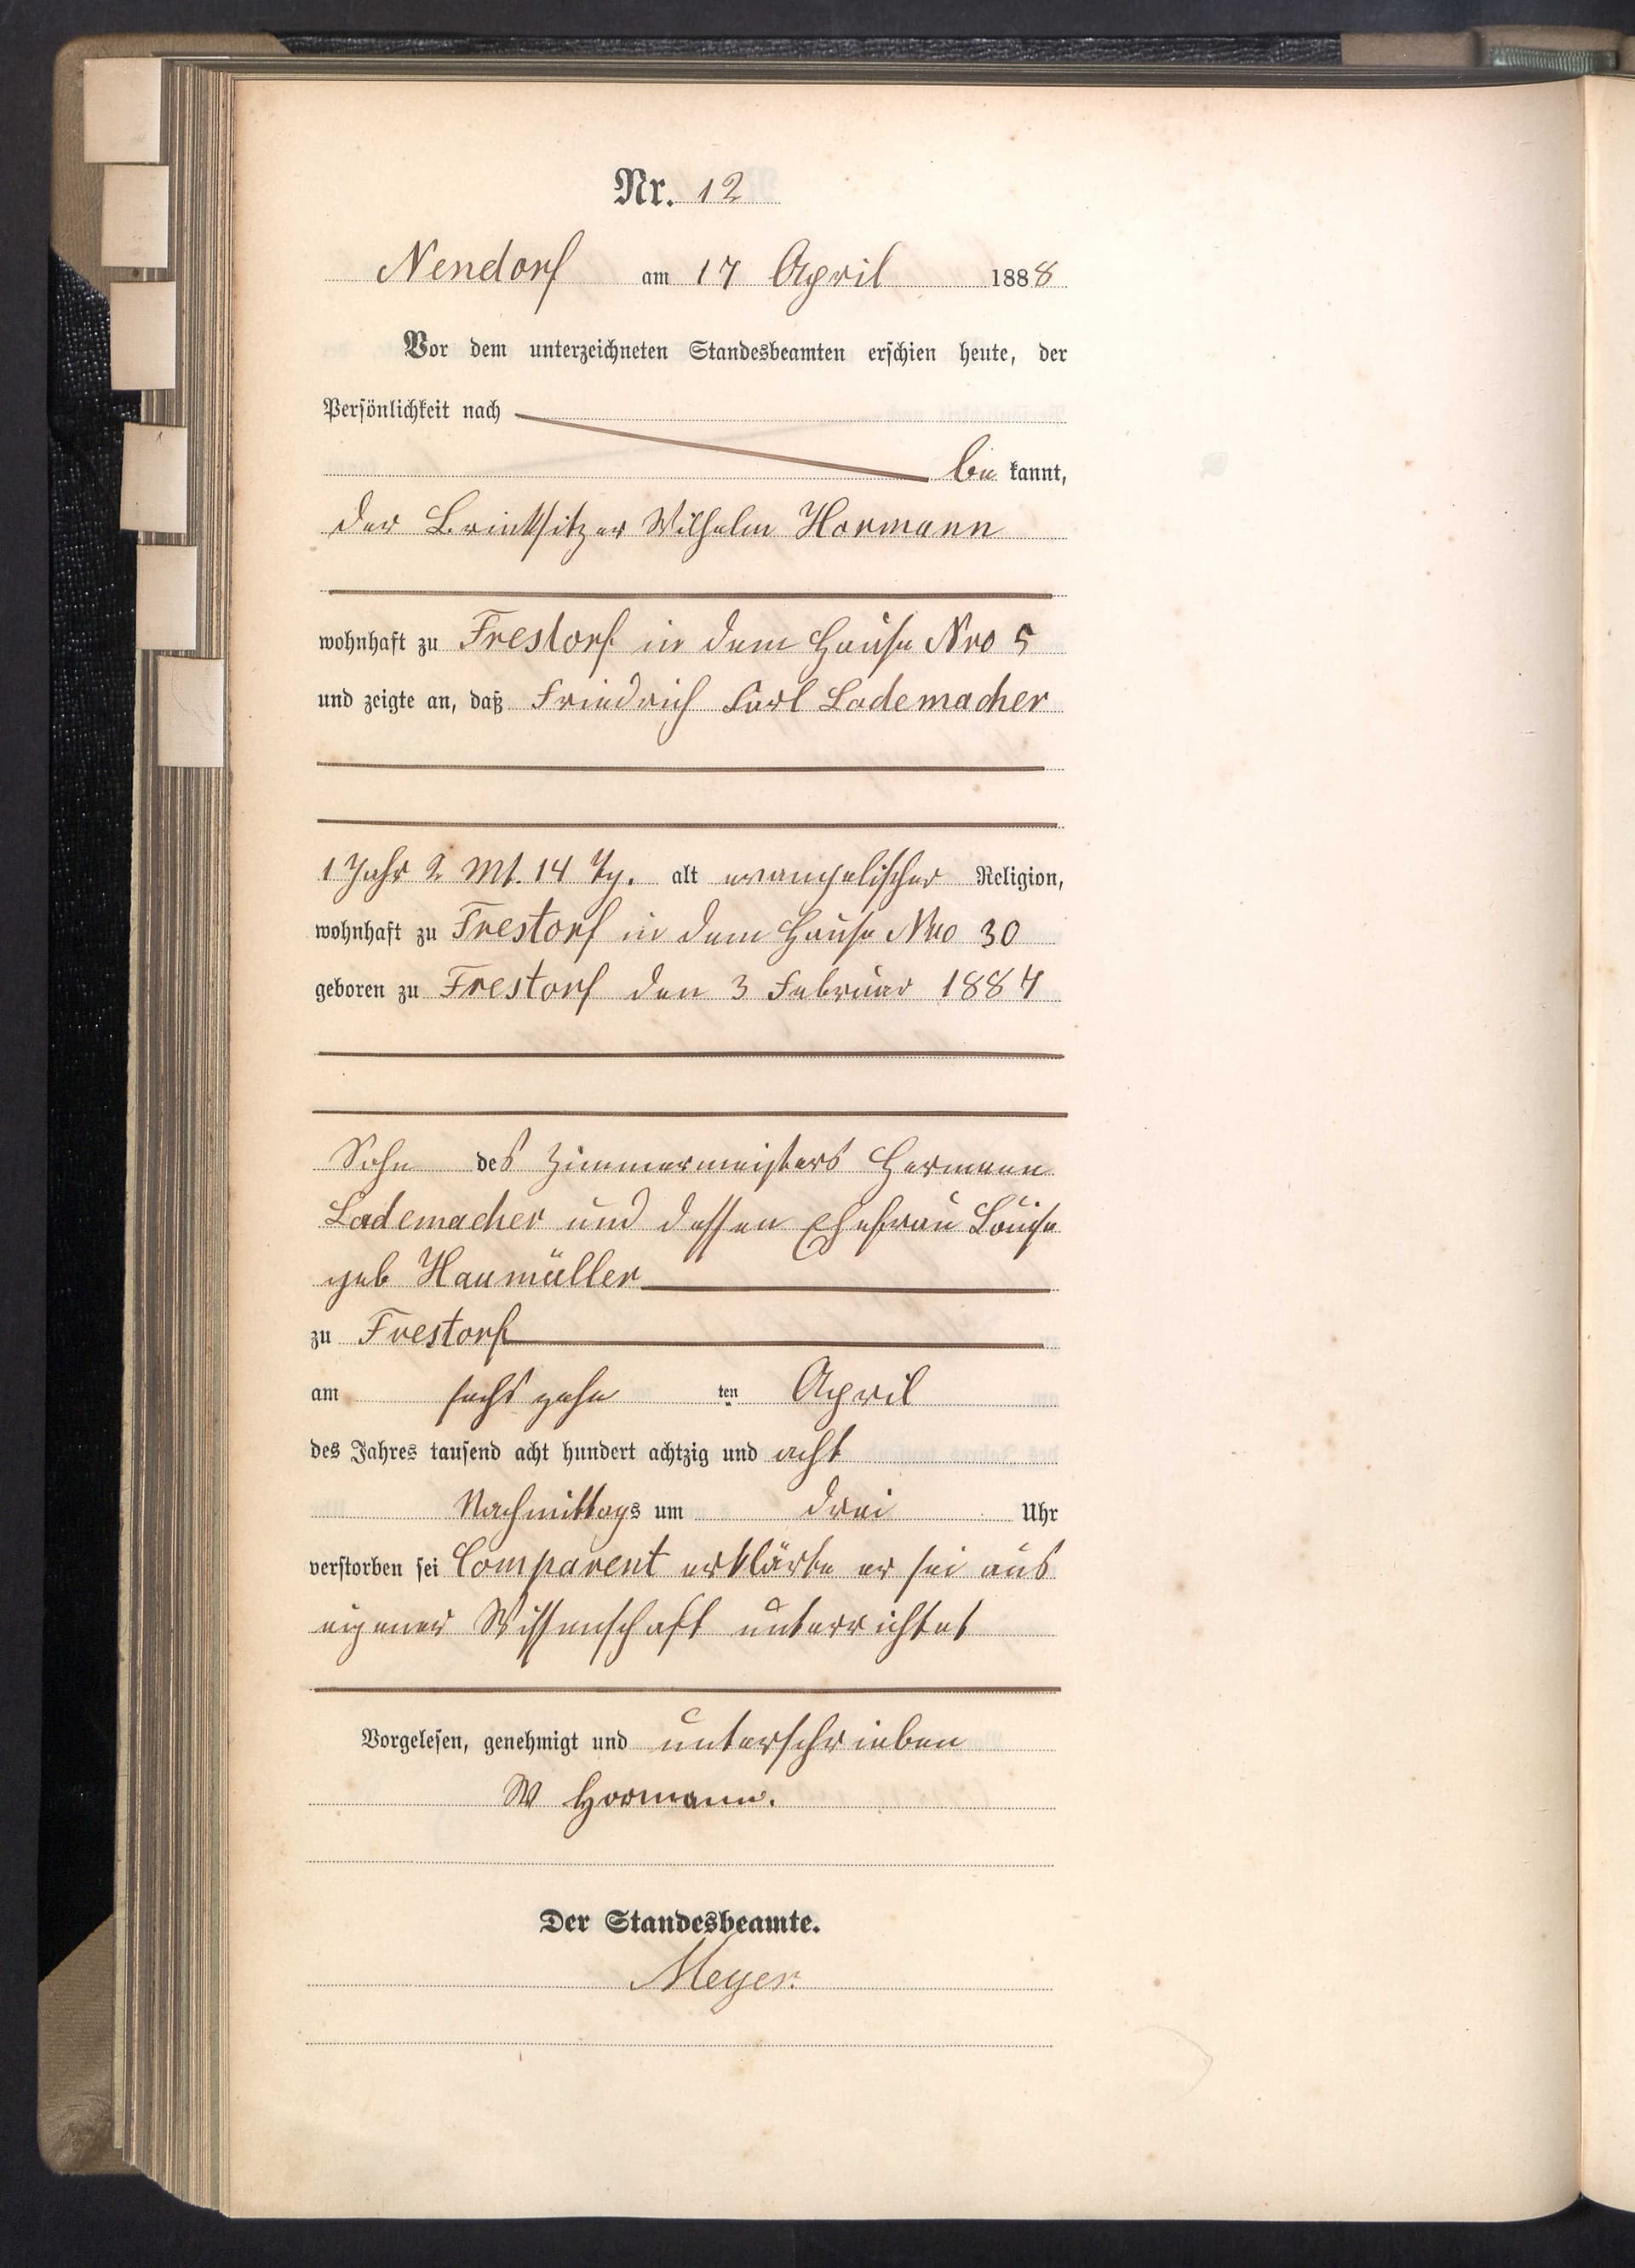 Nr. 12
Nendorf am 17 April 1888
Vor dem unterzeichneten Standesbeamten erschien heute, der
Persönlichkeit nach
be kannt,
der Brinksitzer Wilhelm Hormann
wohnhaft zu Frestorf in dem Hause Nro 5
und zeigte an, daß Friedrich Carl Lademacher
1 Jahr 2 Mt. 14 Tg. alt evangelischer Religion,
wohnhaft zu Frestorf in dem Hause Nro 30
geboren zu Frestorf den 3 Februar 1887
Sohn des Zimmermeisters Hermann
Lademacher und dessen Ehefrau Louise
geb Haumüller
zu Frestorf
am sechszehn ten April
des Jahres tausend acht hundert achtzig und acht
Nachmittags um drei Uhr
verstorben sei Comparent erklärte er sei aus
eigener Wissenschaft unterrichtet
Vorgelesen, genehmigt und unterschrieben
W Hormann.
Der Standesbeamte.
Meyer.